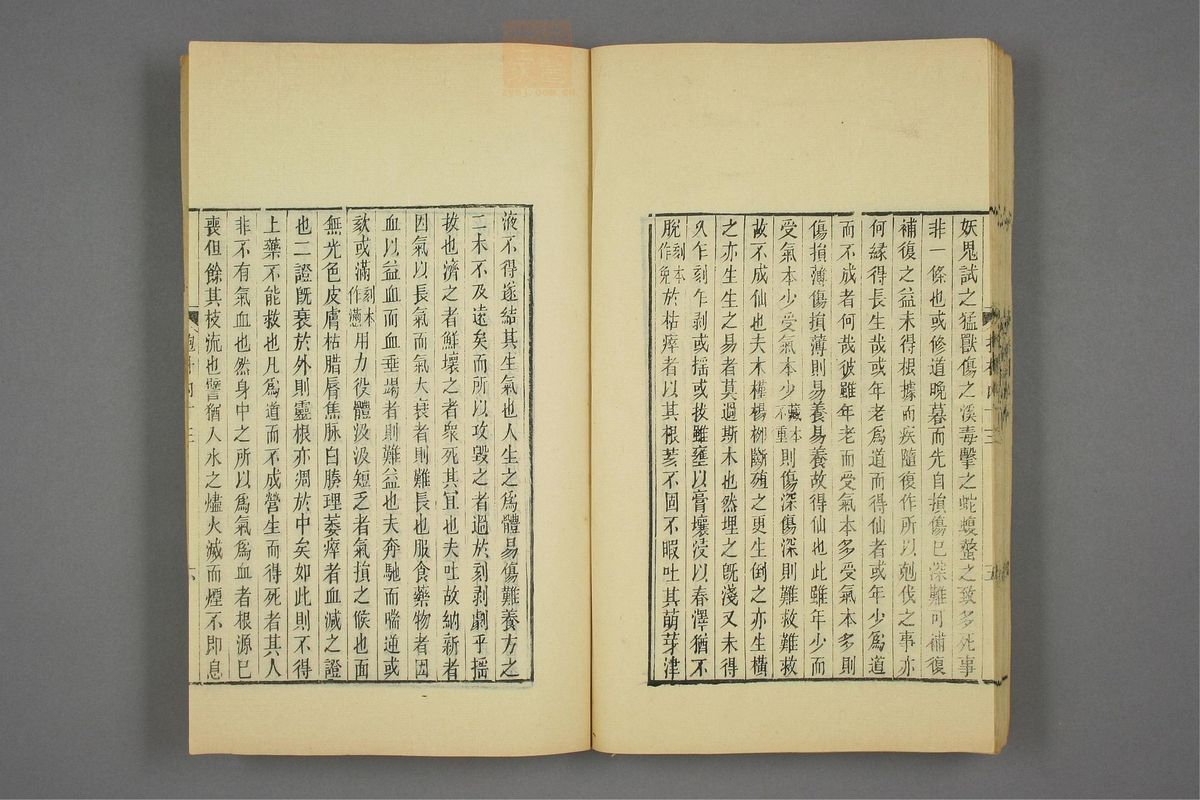 妖鬼試之猛獸傷之溪毒擊之蛇蝮螫之致多死事
非一條也或修道晚暮而先自損傷已深難可補復
補復之益未得根據而疾隨復作所以剋伐之事亦
何緣得長生哉或年老為道而得仙者或年少為道
而不成者何哉彼雖年老而受氣本多受氣本多則
傷損薄傷損薄則易養易養故得仙也此雖年少而
受氣本少受氣本少藏本不重則傷深傷深則難救難救
故不成仙也夫木槿楊柳斷殖之更生倒之亦生橫
之亦生生之易者莫過斯木也然埋之既淺又未得
久乍刻乍剥或搖或拔雖壅以膏壤浸以春澤猶不
脫刻本作免於枯瘁者以其根荄不固不暇吐其萌芽津
液不得遂結其生氣也人生之為體易傷難養方之
二木不及遠矣而所以攻毀之者過於刻剥劇乎搖
拔也濟之者鮮壞之者衆死其宜也夫吐故納新者
因氣以長氣而氣大衰者則難長也服食藥物者因
血以益血而血垂竭者則難益也夫奔馳而喘逆或
欬或滿刻本作懣用力役體汲汲短乏者氣損之候也面
無光色皮膚枯腊脣焦脉白腠理萎瘁者血減之證
也二證既衰於外則靈根亦凋於中矣如此則不得
上藥不能救也凡為道而不成營生而得死者其人
非不有氣血也然身中之所以為氣為血者根源已
喪但餘其枝流也譬猶入水之燼火滅而煙不即息